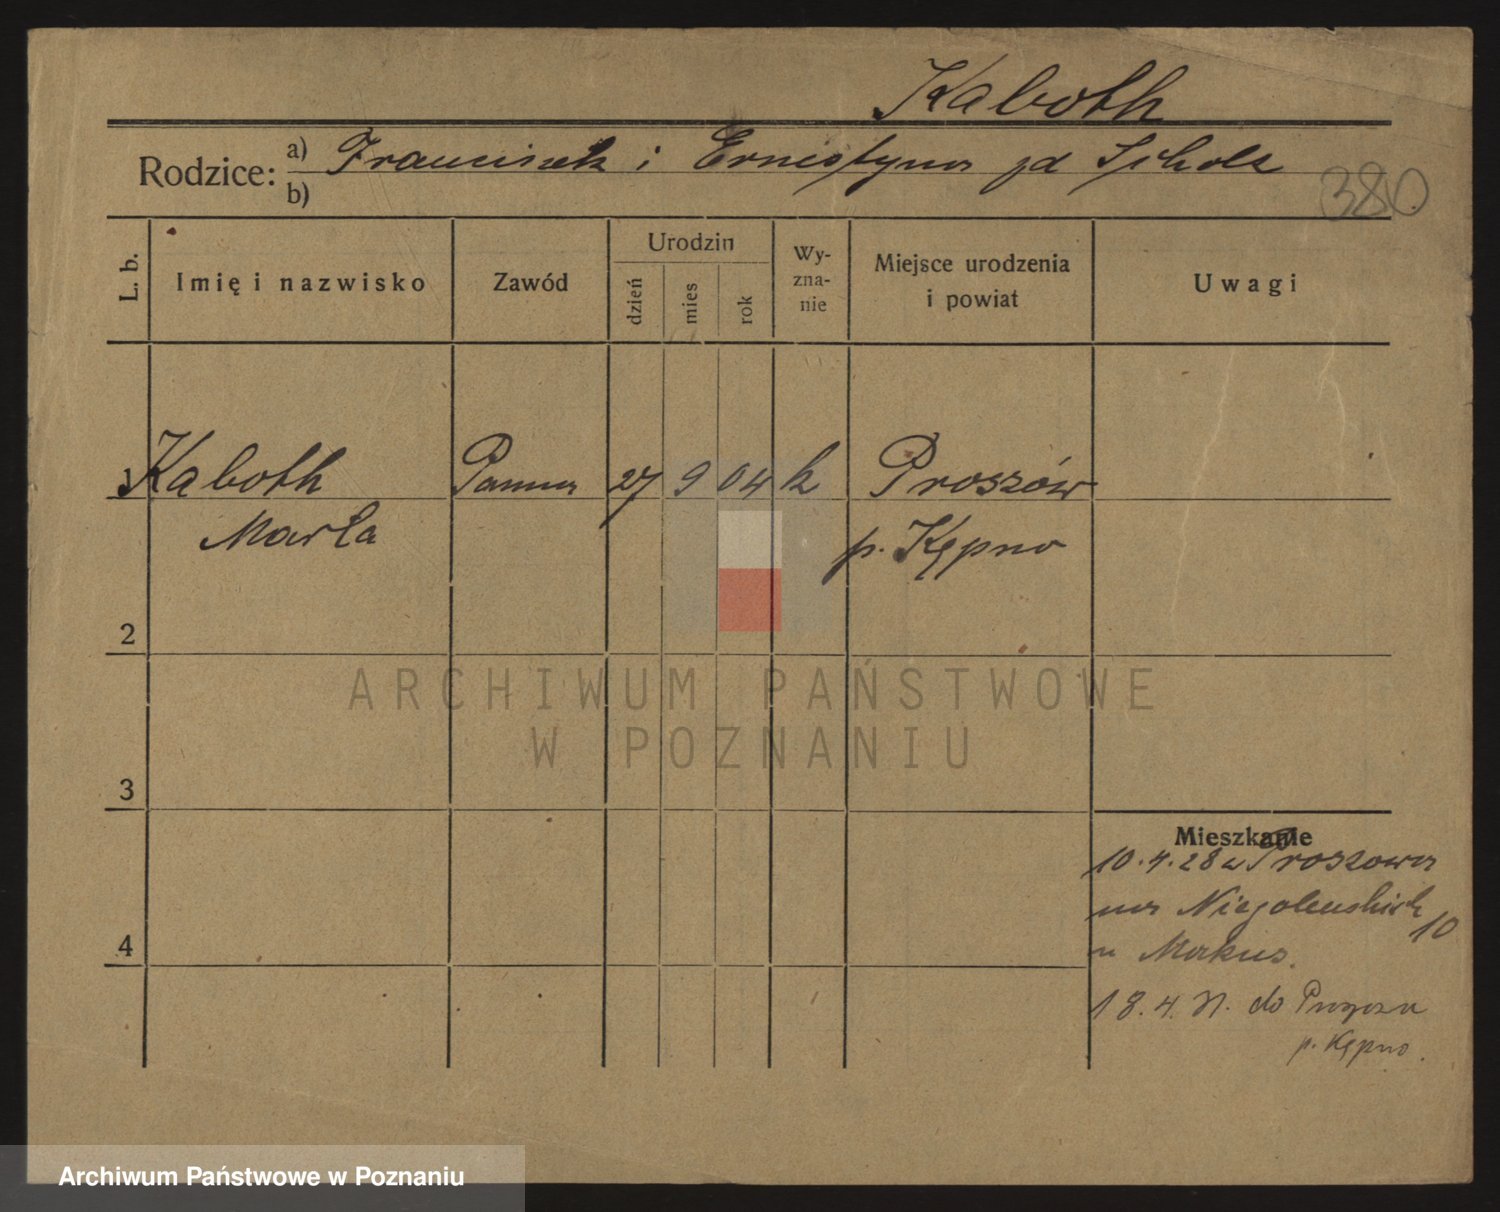 Kaboth
Rodzice: a) Franciszek i Ernestyna zd Scholz
b)
380
L. b.
Imię i nazwisko
Zawód
Urodzin
dzień
mies
rok
Wy-
zna-
nie
Miejsce urodzenia
i powiat
Uwagi
1 Kaboth Panna 27 9 04 k Proszów
Marta p. Kępno
2
ARCHIWUM PAŃSTWOWE
W POZNANIU
3
Mieszkanie
10.4.28 w Proszowa
na Niegolewskich 10
u Markus.
4
18.4. do
p. Kępno.
Archiwum Państwowe w Poznaniu